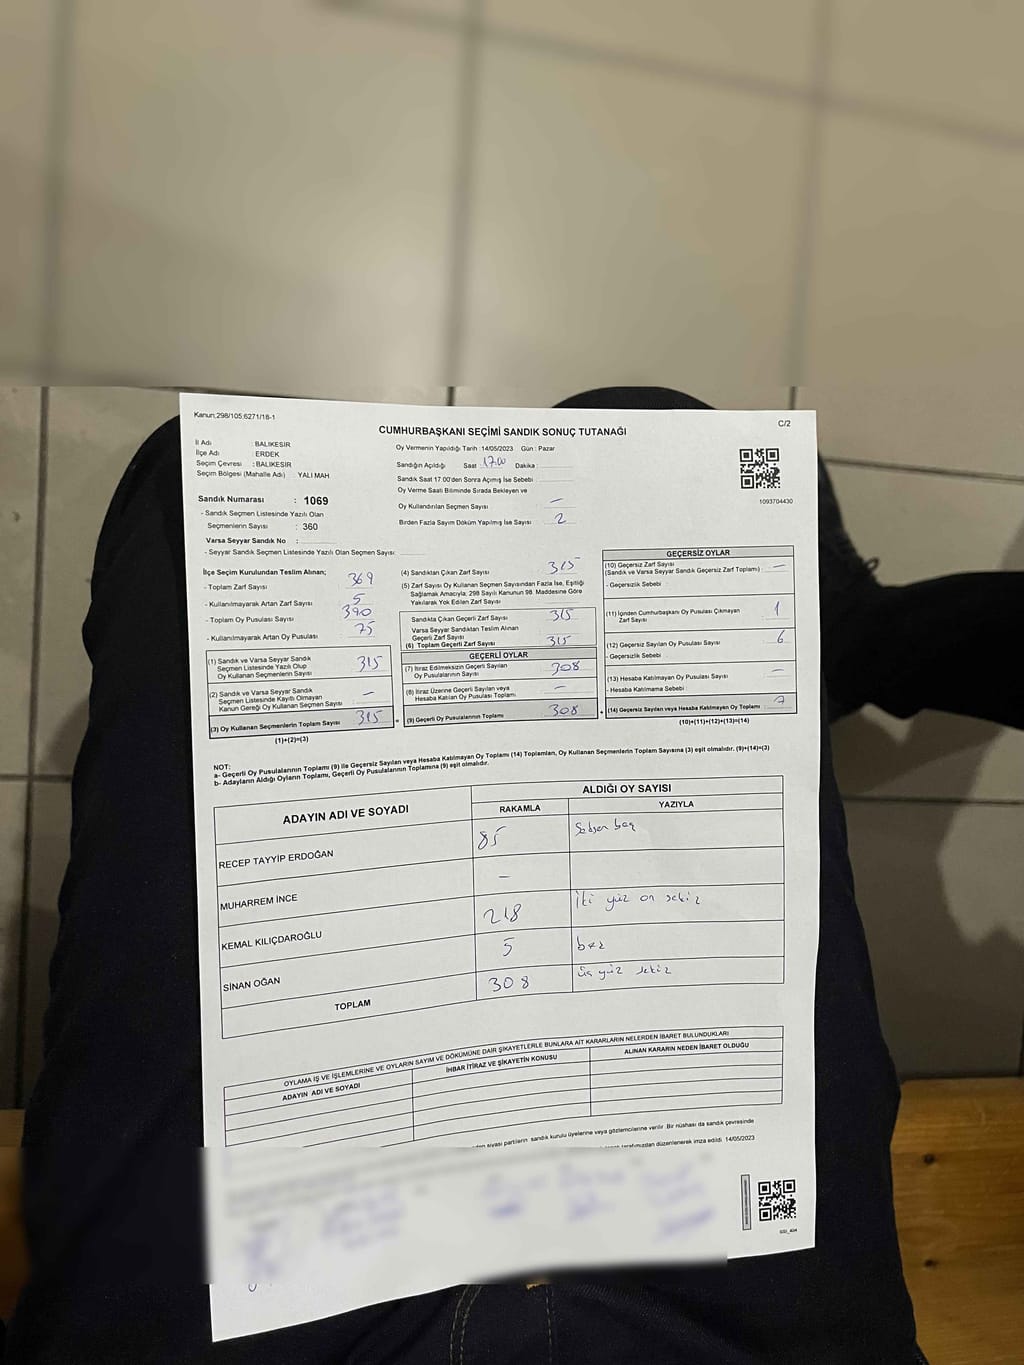 Kanun;298/105;6271/18-1
C/2
CUMHURBAŞKANI SEÇİMİ SANDIK SONUÇ TUTANAĞI
İl Adı : BALIKESİR
İlçe Adı : ERDEK
Seçim Çevresi : BALIKESİR
Seçim Bölgesi (Mahalle Adı) : YALI MAH
Sandık Numarası : 1069
- Sandık Seçmen Listesinde Yazılı Olan
Seçmenlerin Sayısı : 360
Varsa Seyyar Sandık No :
- Seyyar Sandık Seçmen Listesinde Yazılı Olan Seçmen Sayısı
Oy Vermenin Yapıldığı Tarih : 14/05/2023 Gün : Pazar
Sandığın Açıldığı Saat 17.00 Dakika :
Sandık Saat 17.00'den Sonra Açılmış İse Sebebi
Oy Verme Saati Bitiminde Sırada Bekleyen ve
Oy Kullandırılan Seçmen Sayısı —
Birden Fazla Sayım Döküm Yapılmış İse Sayısı 2
1093704430
İlçe Seçim Kurulundan Teslim Alınan;
- Toplam Zarf Sayısı 369
- Kullanılmayarak Artan Zarf Sayısı 5
- Toplam Oy Pusulası Sayısı 390
- Kullanılmayarak Artan Oy Pusulası 75
(1) Sandık ve Varsa Seyyar Sandık
Seçmen Listesinde Yazılı Olup
Oy Kullanan Seçmenlerin Sayısı 315
(2) Sandık ve Varsa Seyyar Sandık
Seçmen Listesinde Kayıtlı Olmayan
Kanun Gereği Oy Kullanan Seçmen Sayısı —
(3) Oy Kullanan Seçmenlerin Toplam Sayısı 315
(1)+(2)=(3)
(4) Sandıktan Çıkan Zarf Sayısı 315
(5) Zarf Sayısı Oy Kullanan Seçmen Sayısından Fazla İse, Eşitliği
Sağlamak Amacıyla, 298 Sayılı Kanunun 98. Maddesine Göre
Yakılarak Yok Edilen Zarf Sayısı
Sandıkta Çıkan Geçerli Zarf Sayısı 315
Varsa Seyyar Sandıktan Teslim Alınan
Geçerli Zarf Sayısı
(6) Toplam Geçerli Zarf Sayısı 315
GEÇERLİ OYLAR
(7) İtiraz Edilmeksizin Geçerli Sayılan
Oy Pusulalarının Sayısı 308
(8) İtiraz Üzerine Geçerli Sayılan veya
Hesaba Katılan Oy Pusulası Toplamı —
= (9) Geçerli Oy Pusulalarının Toplamı 308
GEÇERSİZ OYLAR
(10) Geçersiz Zarf Sayısı
(Sandık ve Varsa Seyyar Sandık Geçersiz Zarf Toplamı) —
- Geçersizlik Sebebi
(11) İçinden Cumhurbaşkanı Oy Pusulası Çıkmayan
Zarf Sayısı 1
(12) Geçersiz Sayılan Oy Pusulası Sayısı 6
- Geçersizlik Sebebi
(13) Hesaba Katılmayan Oy Pusulası Sayısı —
- Hesaba Katılmama Sebebi
+ (14) Geçersiz Sayılan veya Hesaba Katılmayan Oy Toplamı 7
(10)+(11)+(12)+(13)=(14)
NOT:
a- Geçerli Oy Pusulalarının Toplamı (9) ile Geçersiz Sayılan veya Hesaba Katılmayan Oy Toplamı (14) Toplamları, Oy Kullanan Seçmenlerin Toplam Sayısına (3) eşit olmalıdır. (9)+(14)=(3)
b- Adayların Aldığı Oyların Toplamı, Geçerli Oy Pusulalarının Toplamına (9) eşit olmalıdır.
ADAYIN ADI VE SOYADI
ALDIĞI OY SAYISI
RAKAMLA YAZIYLA
RECEP TAYYİP ERDOĞAN 85 Seksen beş
MUHARREM İNCE —
KEMAL KILIÇDAROĞLU 218 iki yüz on sekiz
SİNAN OĞAN 5 beş
TOPLAM 308 üç yüz sekiz
OYLAMA İŞ VE İŞLEMLERİNE VE OYLARIN SAYIM VE DÖKÜMÜNE DAİR ŞİKAYETLERLE BUNLARA AİT KARARLARIN NELERDEN İBARET BULUNDUKLARI
ADAYIN ADI VE SOYADI İHBAR İTİRAZ VE ŞİKAYETİN KONUSU ALINAN KARARIN NEDEN İBARET OLDUĞU
siyasi partilerin sandık kurulu üyelerine veya gözlemcilerine verilir. Bir nüshası da sandık çevresinde
tarafımızdan düzenlenerek imza edildi. 14/05/2023